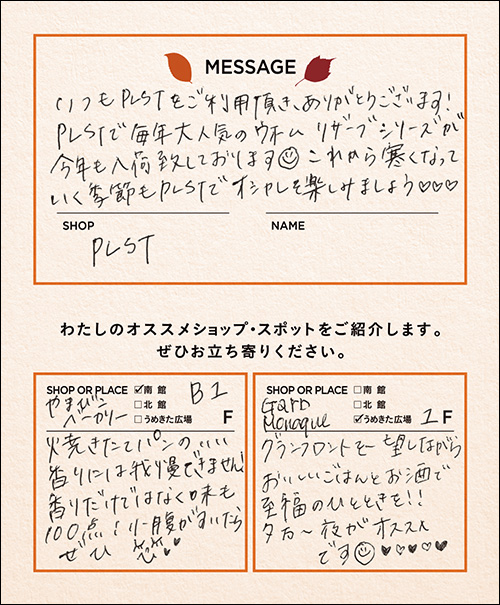 MESSAGE
いつもPLSTをご利用頂き、ありがとうございます!
PLSTで毎年大人気のウォームリザーブシリーズが
今年も入荷致しております☺これから寒くなって
いく季節もPLSTでオシャレを楽しみましょう♡♡♡
SHOP
NAME
PLST
わたしのオススメショップ・スポットをご紹介します。
ぜひお立ち寄りください。
SHOP OR PLACE ☑南 館 B1
□北 館
□うめきた広場 F
やまびこ
ベーカリー
焼きたてパンのいい
香りには我慢できません!
香りだけではなく味も
100点!小腹がすいたら
ぜひ ♥
SHOP OR PLACE □南 館
□北 館
☑うめきた広場 1F
GARB
Monaque
グランフロントを一望しながら
おいしいごはんとお酒で
至福のひとときを!!
夕方〜夜がオススメ
です☺♥♡♥♡♥